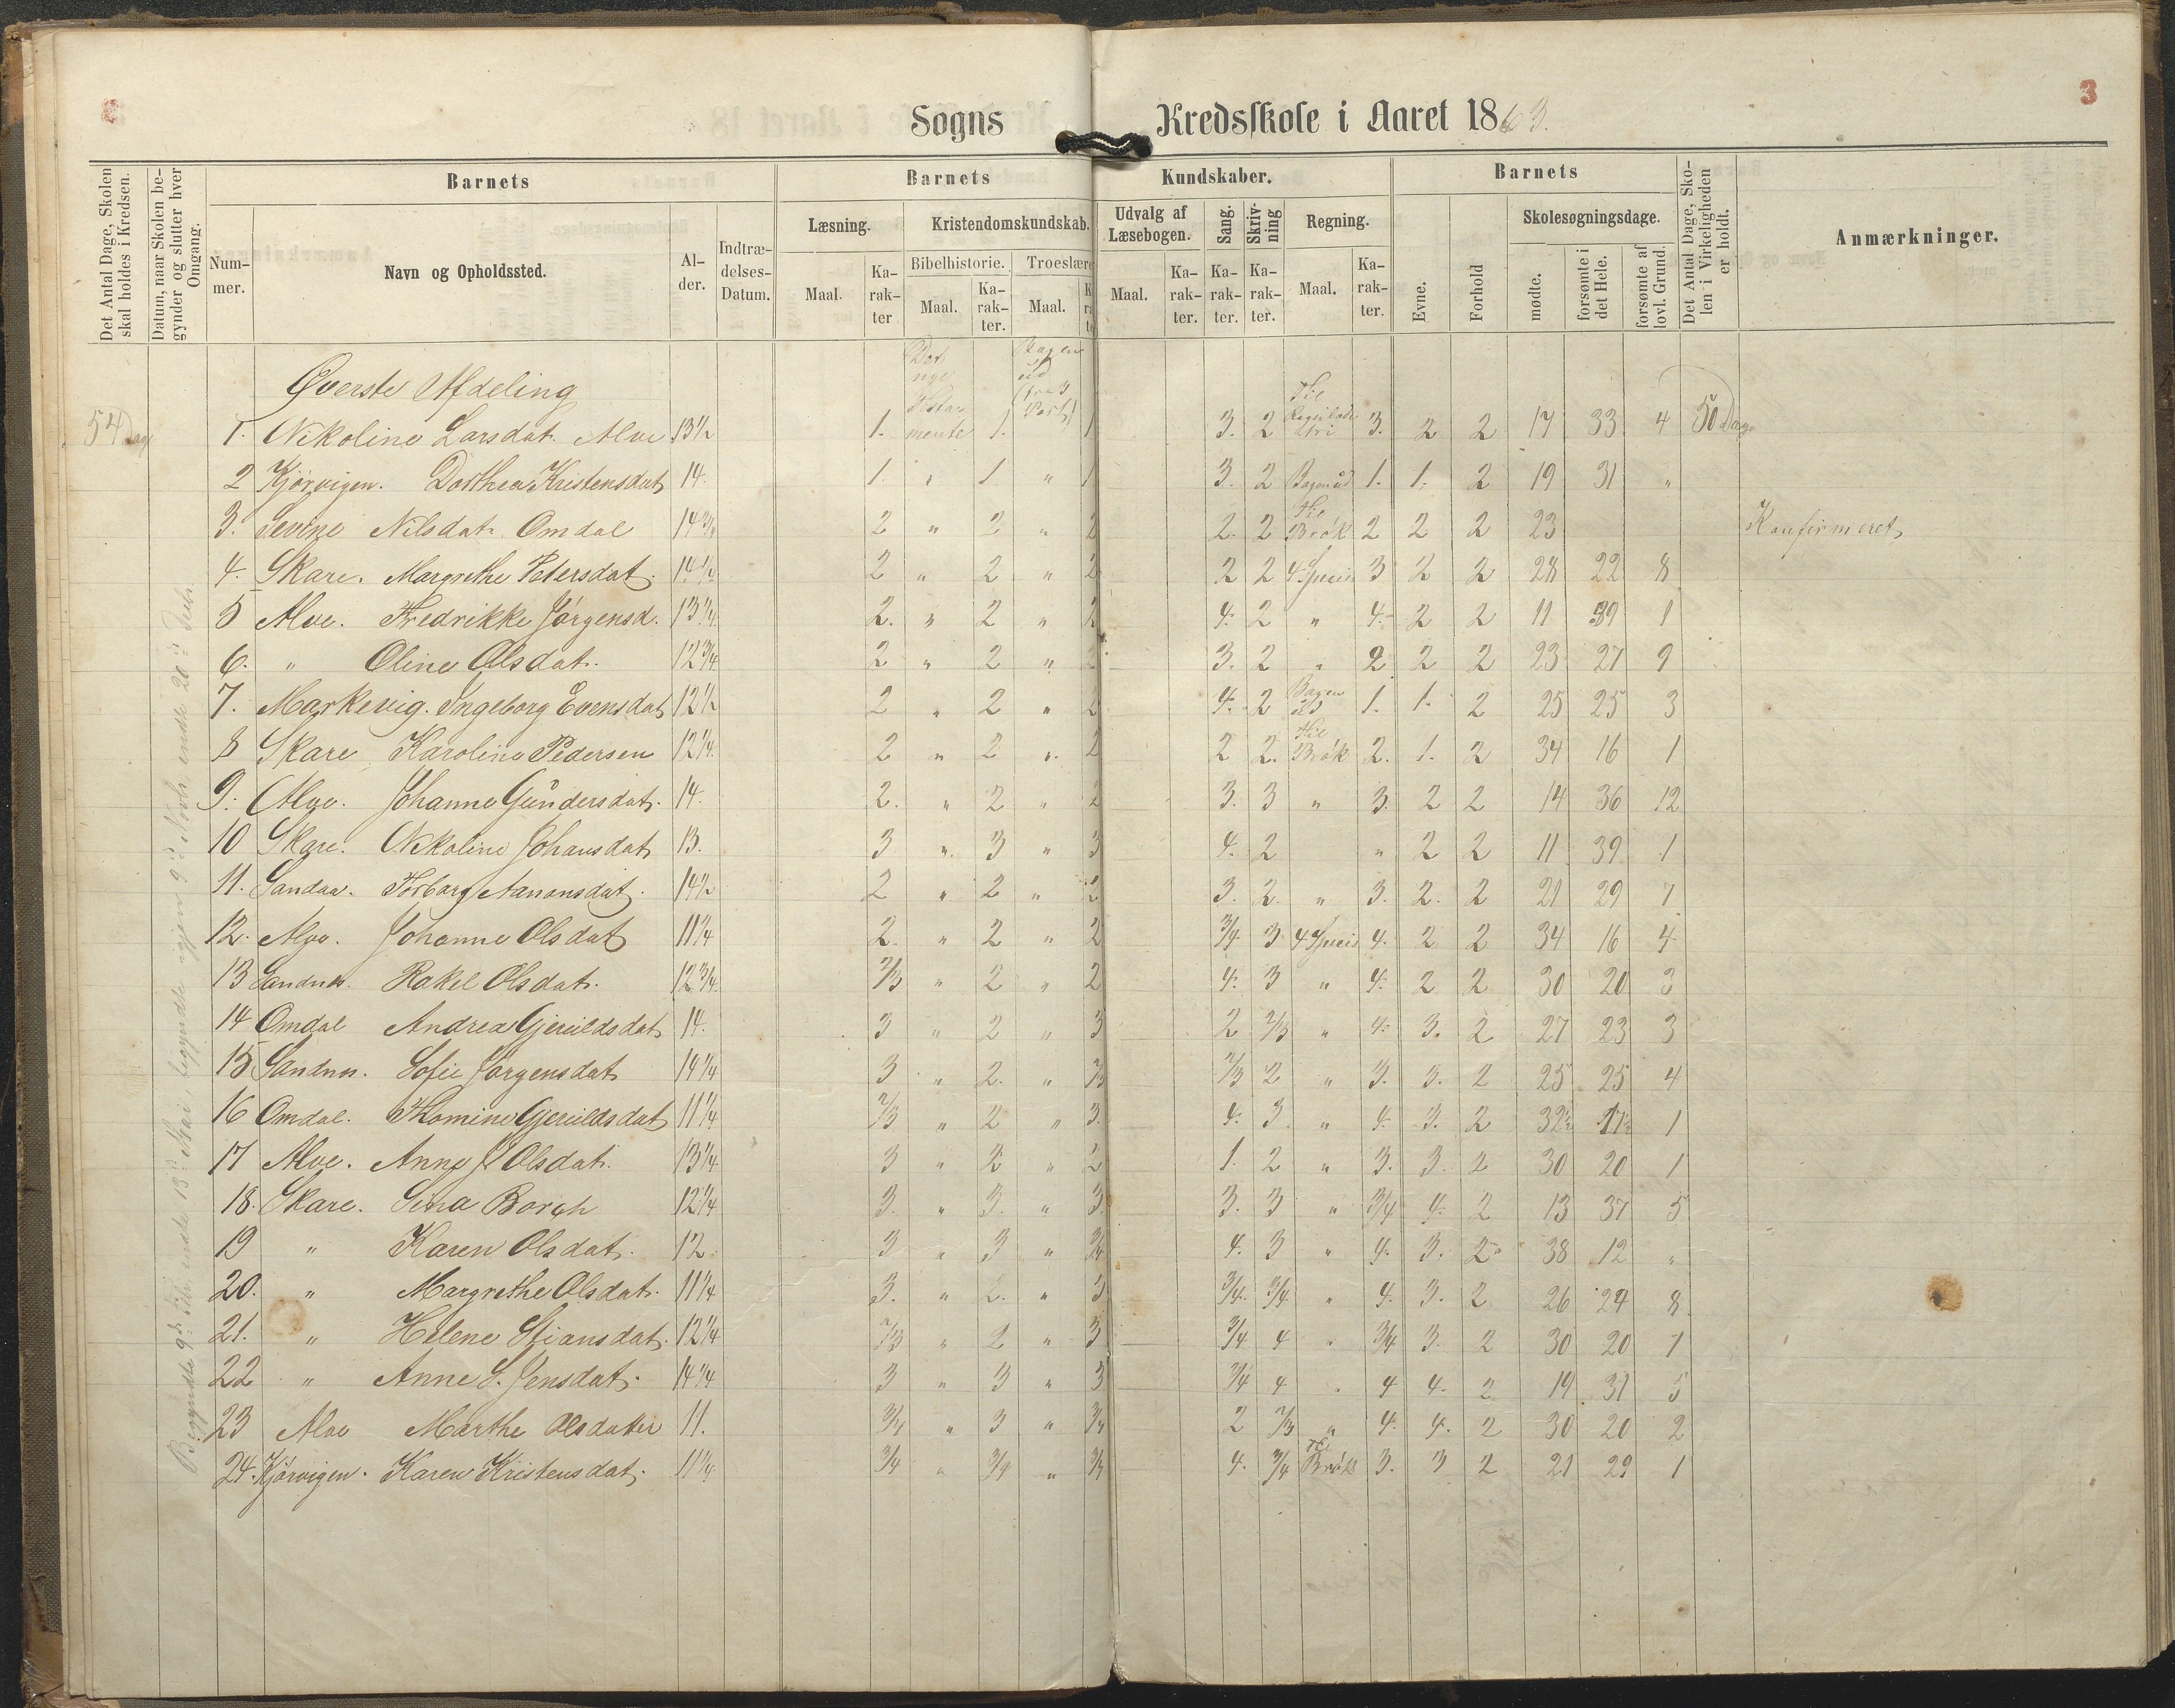 3
Sogns Kredsskole i Aaret 1863.
Det Antal Dage, Skolen skal holdes i Kredsen.
Datum, naar Skolen begynder og slutter hver Omgang.
Barnets
Nummer.
Navn og Opholdssted.
Alder.
Indtrædelses-Datum.
Barnets Kundskaber.
Læsning.
Maal.
Karakter
Kristendomskundskab.
Bibelhistorie.
Maal.
Karakter.
Troeslære
Maal.
Udvalg af Læsebogen.
Maal.
Karakter.
Sang.
Karakter.
Skrivning
Karakter.
Regning.
Maal.
Karakter.
Barnets
Evne.
Forhold
Skolesøgningsdage.
mødte.
forsømte i det Hele.
forsømte af lovl. Grund.
Det Antal Dage, Skolen i Virkeligheden er holdt.
Anmærkninger.
Øverste Afdeling
54 Dage 1. Nikoline Larsdat. Alve 13½ 1. Det nye Testamente 1. Bogen ud 1 3. 2 3. 2 2 17 33 4 50 Dage
2 Kjørvigen. Dorthea Kristensdat 14. 1. " 1 " 1 3. 2 Bogen ud 1. 1. 2 19 31 "
3. Sevine Nilsdat. Omdal 14¾ 2 " 2 " 2 2. 2 Til Brøk 2 2 2 23 Konfirmeret
4. Skare. Margrethe Petersdat. 14¼ 2 " 2 " 2 2 2 4 Species 3 2 2 28 22 8
5 Alve. Fredrikke Jørgensd. 13¼ 2. " 2 " 2 4. 2 " 4. 2 2 11 39 1
6. " Oline Olsdat. 12¾ 2 " 2 " 2 3. 2 " 2 2 2 23 27 9
7. Markevig. Ingeborg Evensdat 12½ 2 " 2 " 2 4. 2 Bogen ud 1. 1. 2 25 25 3
8 Skare Karoline Pedersen 12¼ 2 " 2 " 2 2 2. Til Brøk 2. 1. 2 34 16 1
9. Alve. Johanne Gundersdat. 14. 2. " 2 " 2 3. 3 " 3. 2 2 14 36 12
10 Skare. Nikoline Johansdat 13. 3 " 3 " 3 4. 2 " 2 2 11 39 1
11. Sandaa. Torborg Aanonsdat. 14½ 2 " 2 " 2 3. 2. " 3. 2. 2 21 29 7
12. Alve. Johanne Olsdat 11¼ 2. " 2 " 2 3/4. 3 4 Species 4. 2 2 34 16 4
13 Sandnes. Rakel Olsdat. 12¾ 2/3 " 2 " 2 4. 3 " 4. 2 2 30 20 3
14 Omdal Andrea Gjeruldsdat 14. 3 " 2 " 3 2 2/3 " 4. 3. 2 27 23 3
15 Sandnes. Sofie Jørgensdat 14¼ 3 " 2. " 2/3 2/3 2 " 3. 3. 2 25 25 4
16 Omdal. Thomine Gjeruldsdat 11¼ 2/3 " 2 " 3. 4. 3 " 4. 3. 2 32½ 17½ 1
17 Alve. Anne J Olsdat. 13¼ 3 " 2 " 2 1. 2 " 3. 3. 2 30 20 1
18. Skare. Sina Borgh 12¼ 3. " 3. " 3. 3. 3 " 3/4 4. 2 13 37 5
19 " Karen Olsdat. 12 3 " 3 " 3/4 4. 3 " 4. 3. 2 38 12 "
20. " Margrethe Olsdat. 11¼ 3. " 2. " 3 3/4. 3/4 " 4. 3. 2 26 24 8
21. " Helene Stiansdat. 12¼ 2/3 " 2 " 3 3/4 4 " 3/4 3. 2 30 20 7
22 " Anne S. Jensdat. 14¼ 3 " 3 " 3 3/4 4 " 4 4. 2 19 31 5
23 Alve Marthe Olsdatter 11. 3/4 " 3 " 3/4 2 2/3 " 4. 4. 2 30 20 2
24. Kjørvigen. Karen Kristensdat. 11¼ 3/4 " 3/4 " 3/4 4. 3/4 Til Brøk 3. 3 2 21 29 1
Begyndte 9de Febr. endte 13de Mai, begyndte igjen 9de Novb. endte 20de Decbr.